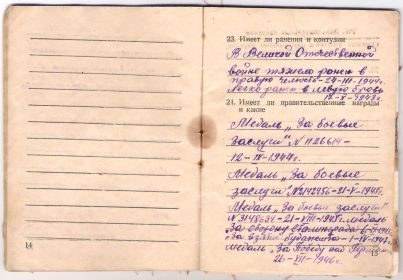 23. Имеет ли ранения и контузии
В Великой Отечественной
войне тяжело ранен в
правую челюсть-24-III-1944г.
Легко ранен в левую бровь
24. Имеет ли правительственные награды
и какие
Медаль „За боевые
заслуги" № 1126614 -
12-IX-1944г.
Медаль „За боевые
заслуги" №2142456-21-V-1945г.
Медаль „За боевые заслуги"
№3148634-21-VIII-1945г. медаль
За оборону Сталинграда
За взятие Будапешта
медаль „За Победу над
26-VII-1946г.
14
15